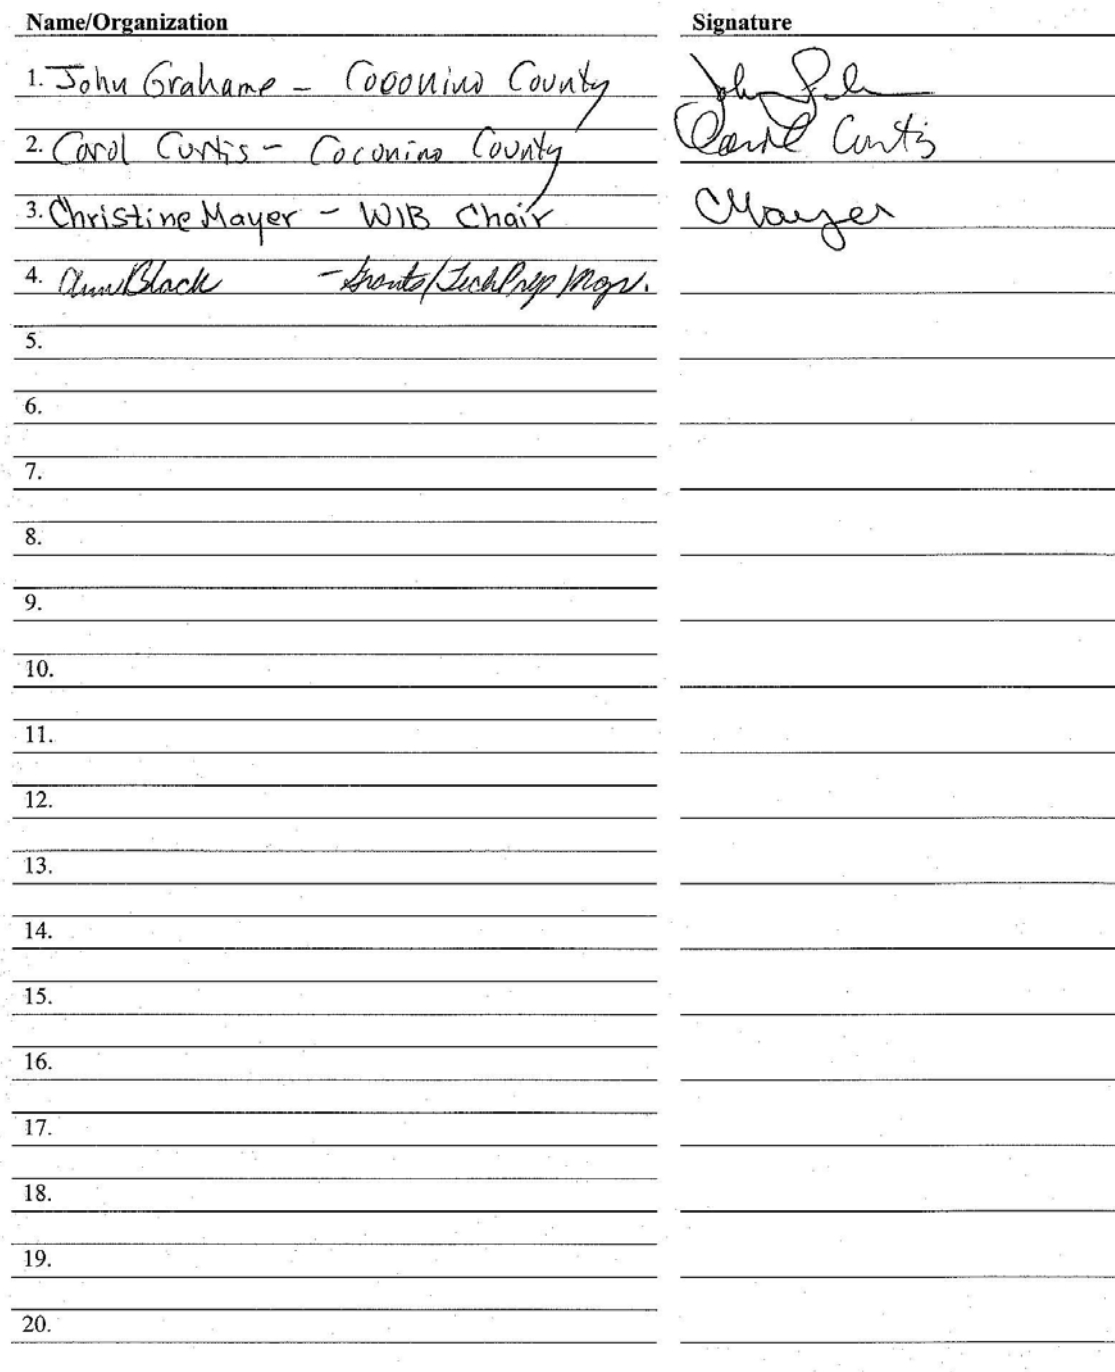 Name/Organization Signature
1. John Grahame - Coconino County John
2. Carol Curtis - Coconino County Carol Curtis
3. Christine Mayer - WIB Chair CMayer
4. Ann Black - Grants/Tech Prep Mgr.
5.
6.
7.
8.
9.
10.
11.
12.
13.
14.
15.
16.
17.
18.
19.
20.